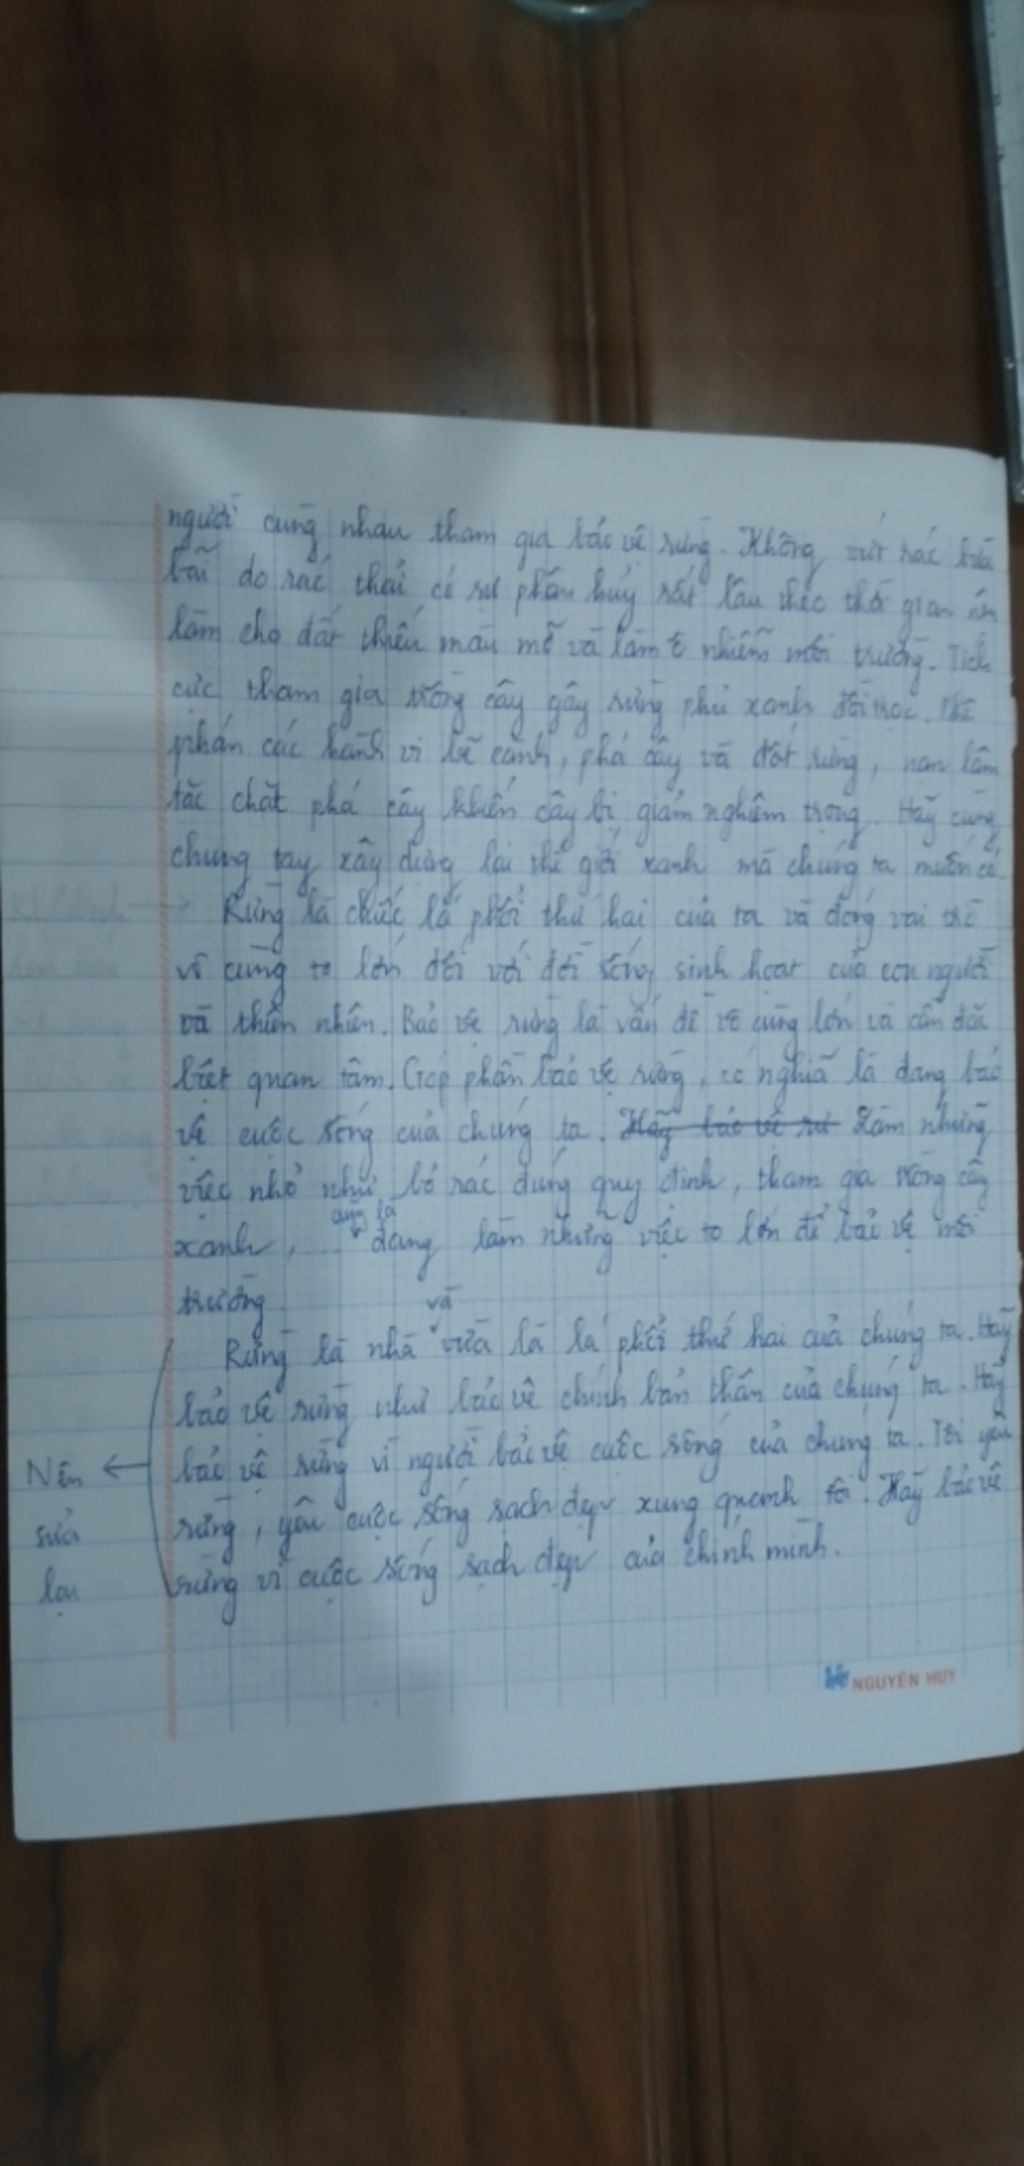 người cùng nhau tham gia bảo vệ rừng. Không vứt rác bừa
bãi do rác thải có sự phân hủy rất lâu theo thời gian
làm cho đất thiếu màu mỡ và làm ô nhiễm môi trường. Tích
cực tham gia trồng cây gây rừng phủ xanh đồi trọc. Phê
phán các hành vi bẻ cành, phá cây và đốt rừng, nạn lâm
tặc chặt phá cây khiến cây bị giảm nghiêm trọng. Hãy cùng
chung tay xây dựng lại thế giới xanh mà chúng ta muốn có.
Rừng là chiếc lá phổi thứ hai của ta và đóng vai trò
vô cùng to lớn đối với đời sống, sinh hoạt của con người
và thiên nhiên. Bảo vệ rừng là vấn đề vô cùng lớn và cần đặc
biệt quan tâm. Góp phần bảo vệ rừng, có nghĩa là đang bảo
vệ cuộc sống của chúng ta. Hãy bảo vệ Làm những
việc nhỏ như bỏ rác đúng quy định, tham gia trồng cây
xanh, cũng là đang làm những việc to lớn để bảo vệ môi
trường
Rừng là nhà và vừa là lá phổi thứ hai của chúng ta. Hãy
bảo vệ rừng như bảo vệ chính bản thân của chúng ta. Hãy
bảo vệ rừng vì người bảo vệ cuộc sống của chúng ta. Tôi yêu
rừng, yêu cuộc sống sạch đẹp xung quanh tôi. Hãy bảo vệ
rừng vì cuộc sống sạch đẹp của chính mình.
Nên
sửa
lại
NGUYÊN HUY